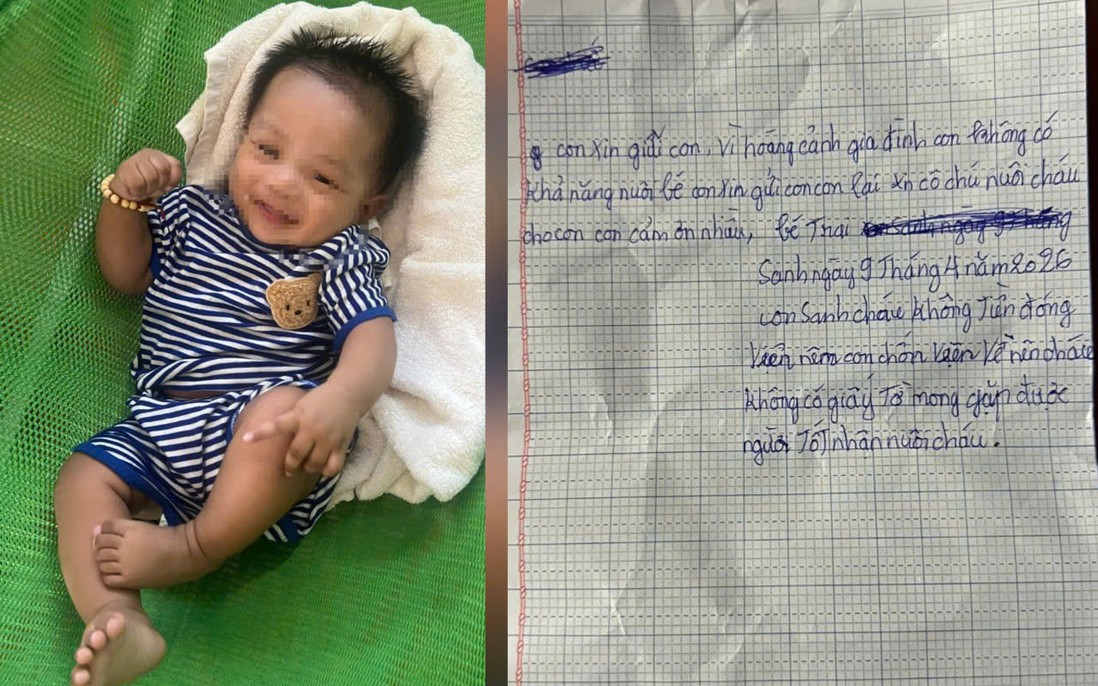 con xin gửi con, vì hoàng cảnh gia đình con không có
khả năng nuôi bé con xin gửi con con lại xn cô chú nuôi cháu
cho con con cảm ơn nhìu, bé Trai
Sanh ngày 9 Tháng 4 năm 2026
con Sanh cháu không Tiền đóng
viện nêm con chốn viện về nên cháu
không có giấy Tờ mong gặp được
người Tốt nhân nuôi cháu.